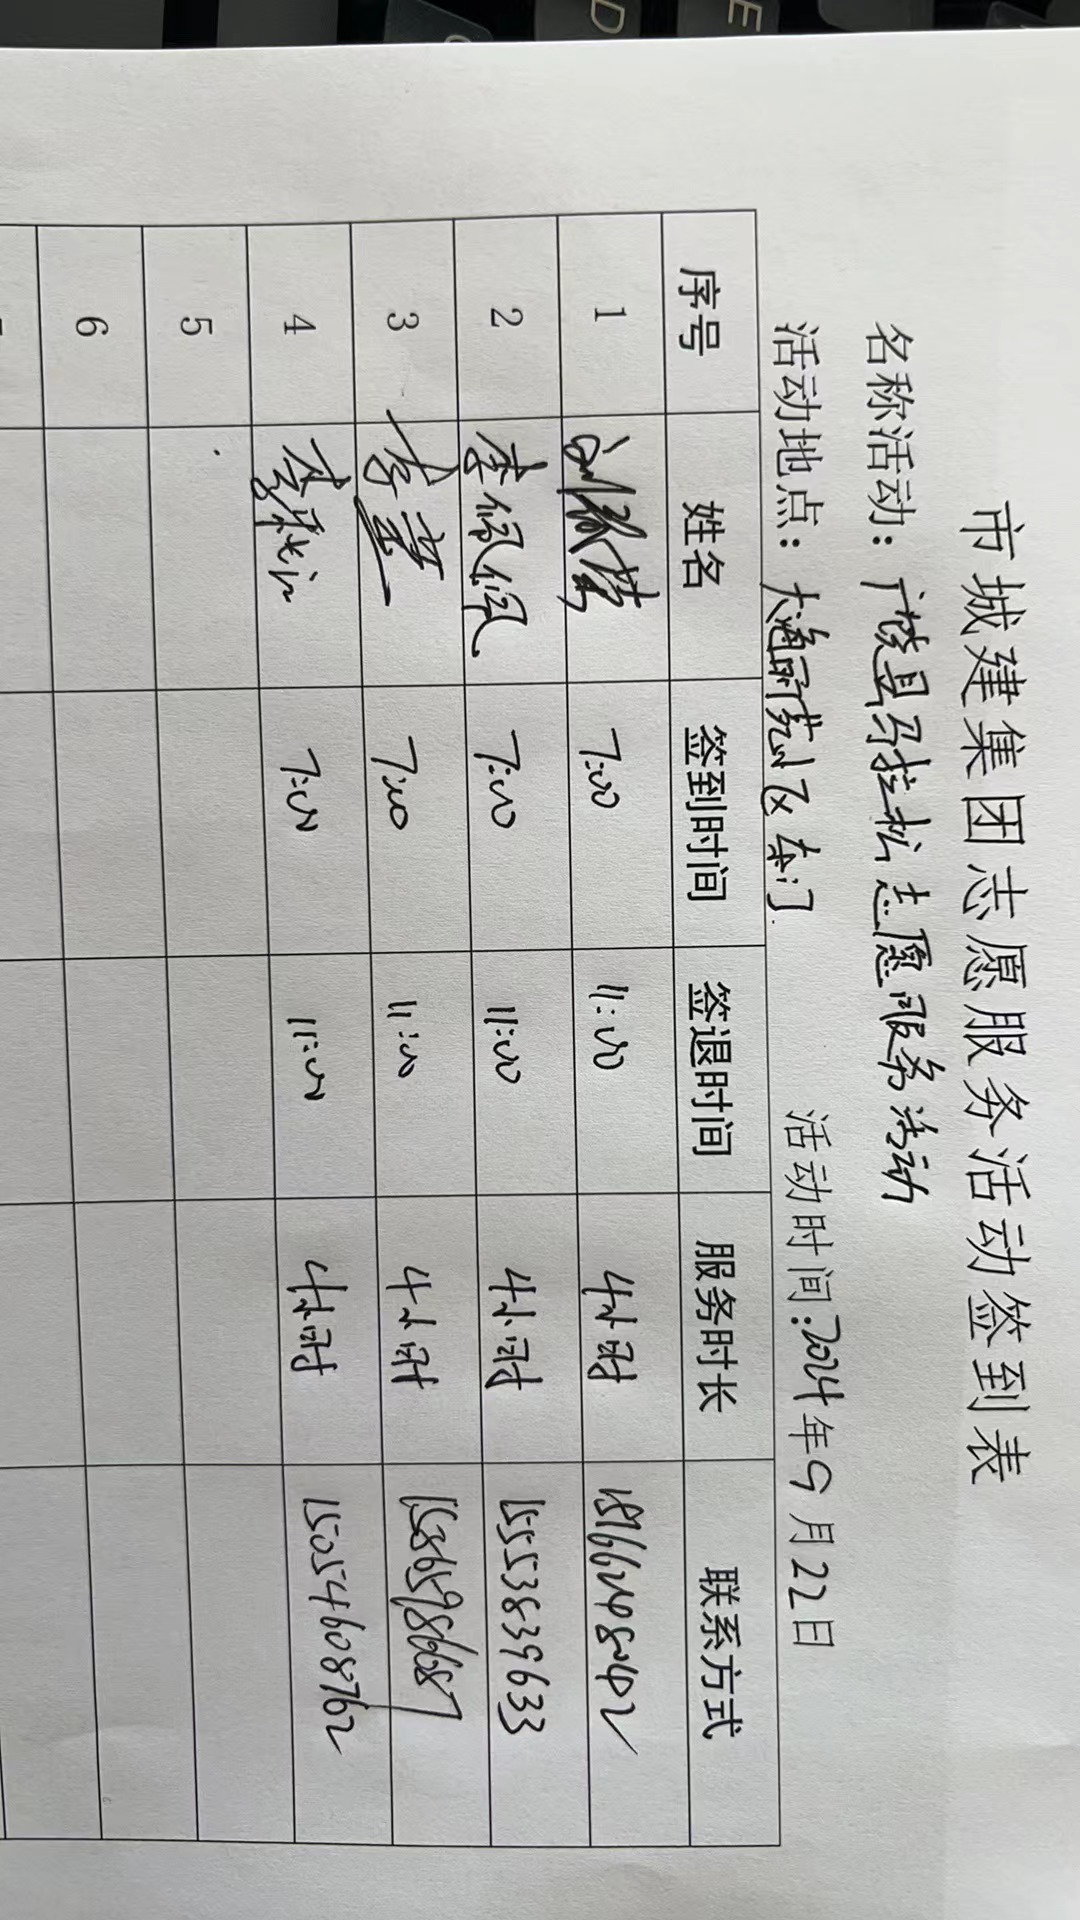 市城建集团志愿服务活动签到表
名称活动：广饶县马拉松志愿服务活动
活动地点：大海丽苑小区东门 活动时间：2024年9月22日
序号 姓名 签到时间 签退时间 服务时长 联系方式
1 7:00 11:00 4小时
2 李佩佩 7:00 11:00 4小时 15553839633
3 李 7:00 11:00 4小时
4 李 7:00 11:00 4小时 15054608762
5
6